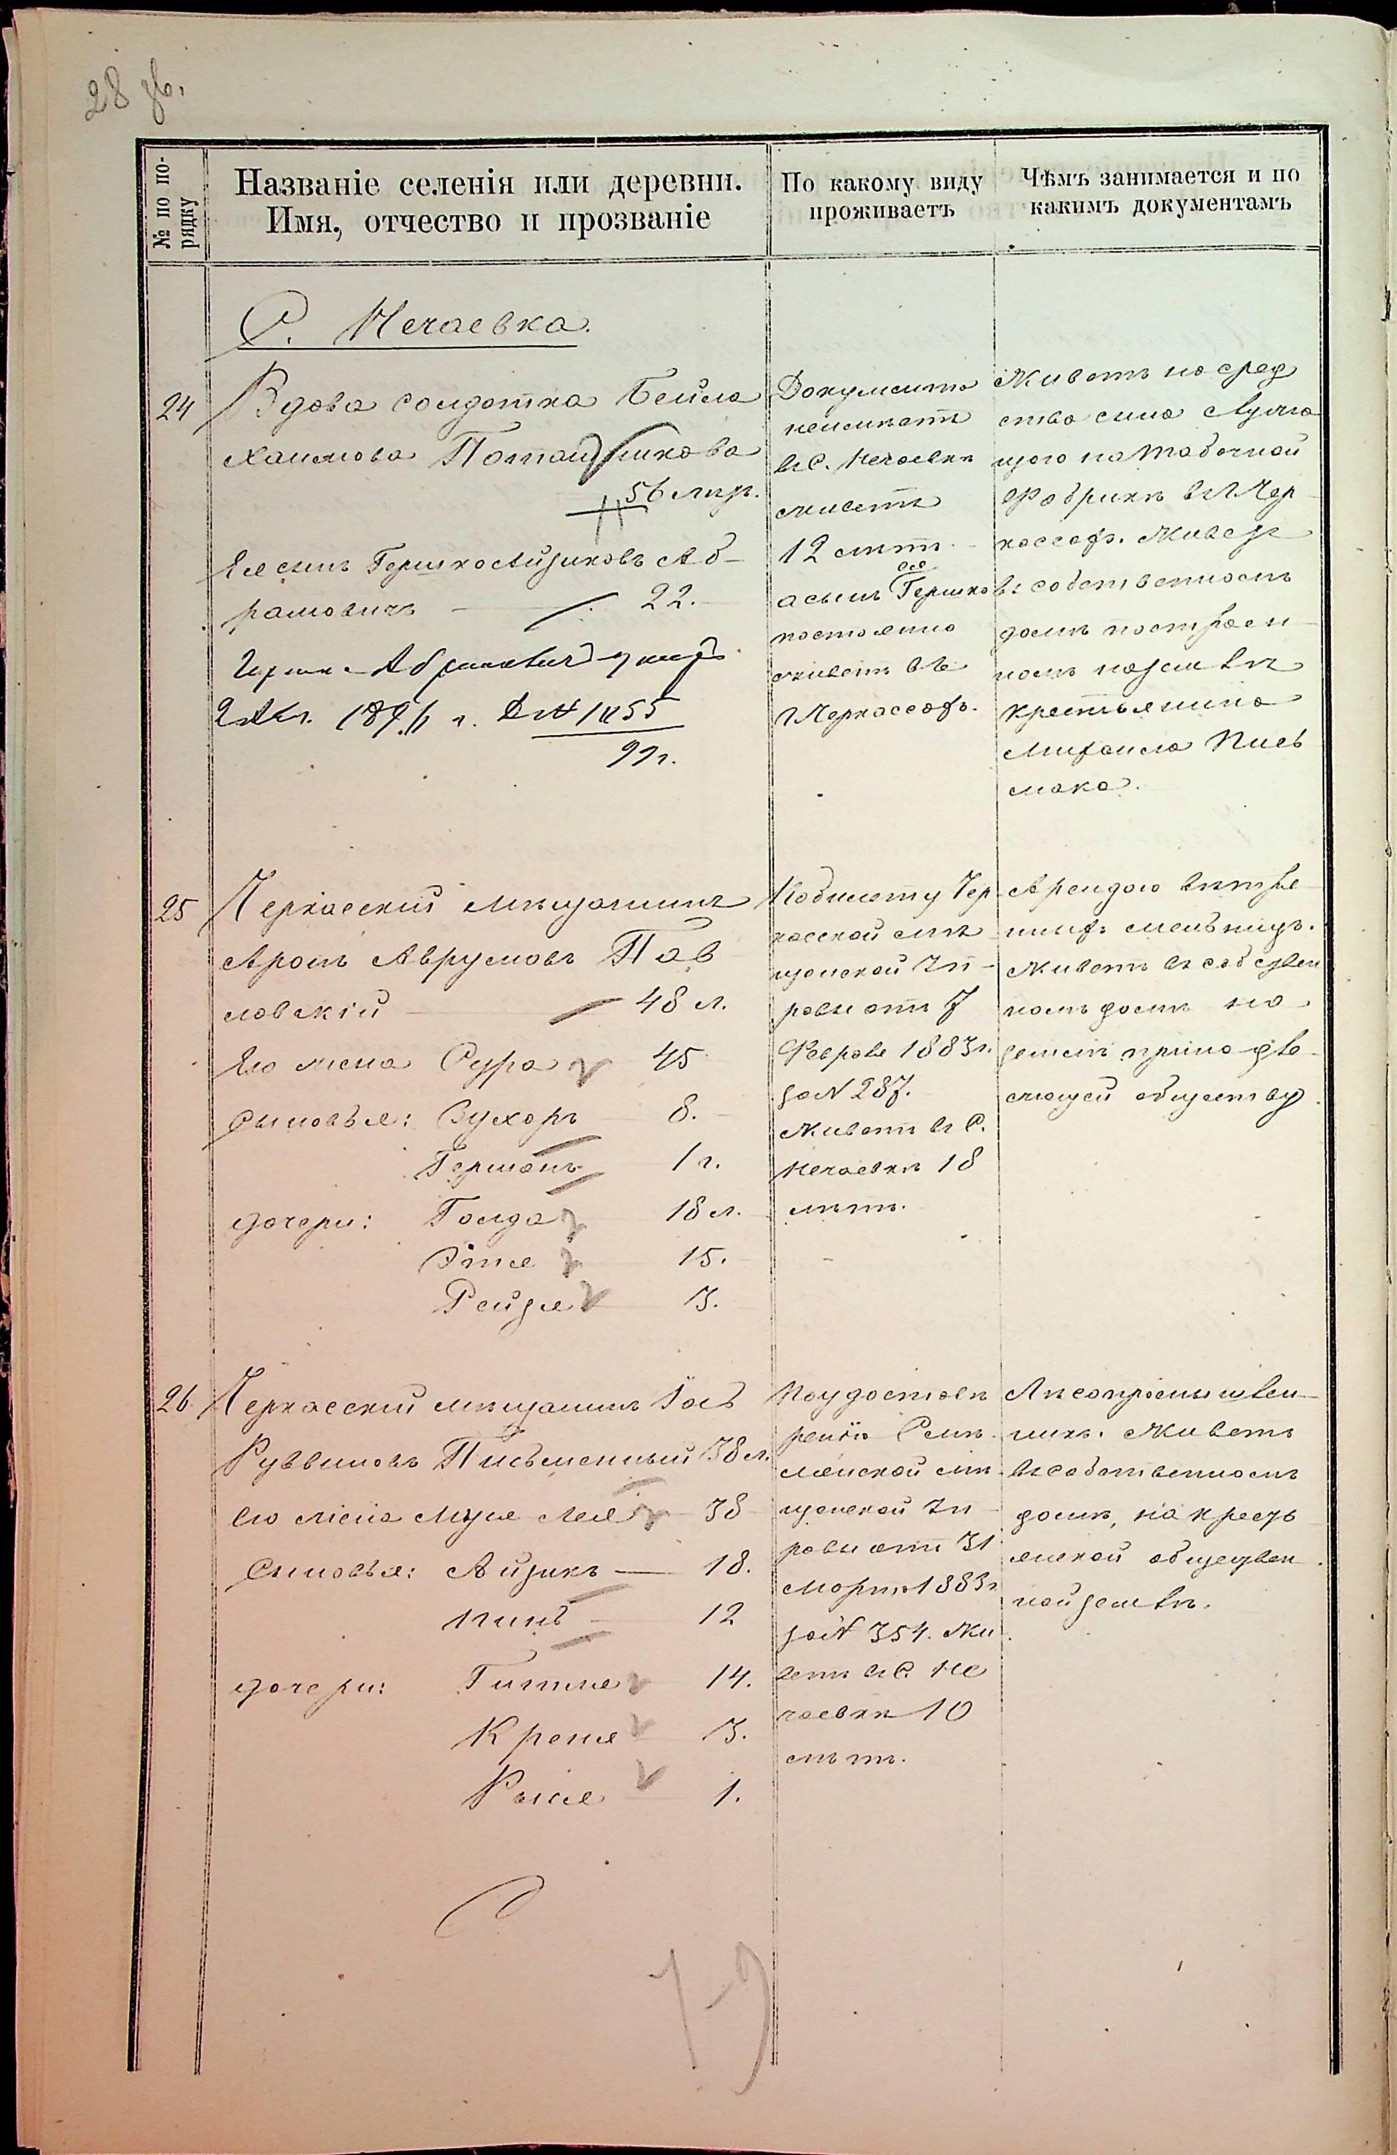 28 об.
№ по по-
рядку
Названіе селенія или деревни.
Имя, отчество и прозваніе
По какому виду
проживаетъ
Чѣмъ занимается и по
какимъ документамъ
С. Нечаевка.
24
Вдова солдатка Бейла
Хаимова
56 лѣтъ.
Ея сынъ Гершко Айзиковъ Аб-
рамовичъ 22.
Абрамовичъ
Документа
неимѣетъ
въ С. Нечаевкѣ
живетъ
12 лѣтъ
а сынъ ея Гершко
постоянно
живетъ въ
г Черкассахъ.
Живетъ на сред
ства сына служа
щого на табочной
Фабрикѣ въ г Чер
кассахъ. Живетъ
въ собственномъ
домѣ построен
номъ на землѣ
крестьянина
Михаила Пись
мака.
25
Черкасский мещанинъ
Аронъ Аврумовъ Пав
ловскій 48 л.
Его жена Сура 45
сыновья: Сухоръ 8.
Германъ 1 г.
дочери: Голда 18 л.
Этля 15.
Рейзя 3.
По билету Чер
касской мѣ
щанской Уп
равы отъ 7
Февраля 1883 г.
за N 287.
Живетъ въ С.
Нечаевкѣ 18
лѣтъ.
Арендою вѣтре
ныхъ мельницъ.
Живетъ въ собствен
номъ домѣ на
землѣ принадле
жащей обществу.
26
Черкасский мещанинъ Іось
Рувиновъ Письменный 38 л.
его жена Муся Лея 38
Сыновья: Айзикъ — 18.
Пинь 12
дочери: Гитля 14.
Креня 3.
Рися 1.
По удостовѣ
ренію Смѣ
лянской мѣ
щанской Уп
равы отъ 31
Марта 1883 г
за N 354. Жи
ветъ въ С. Не
чаевкѣ 10
лѣтъ.
Лѣсопромышлен
никъ. Живетъ
въ собственномъ
домѣ, на кресть
янской обществен
ной землѣ.
7-9